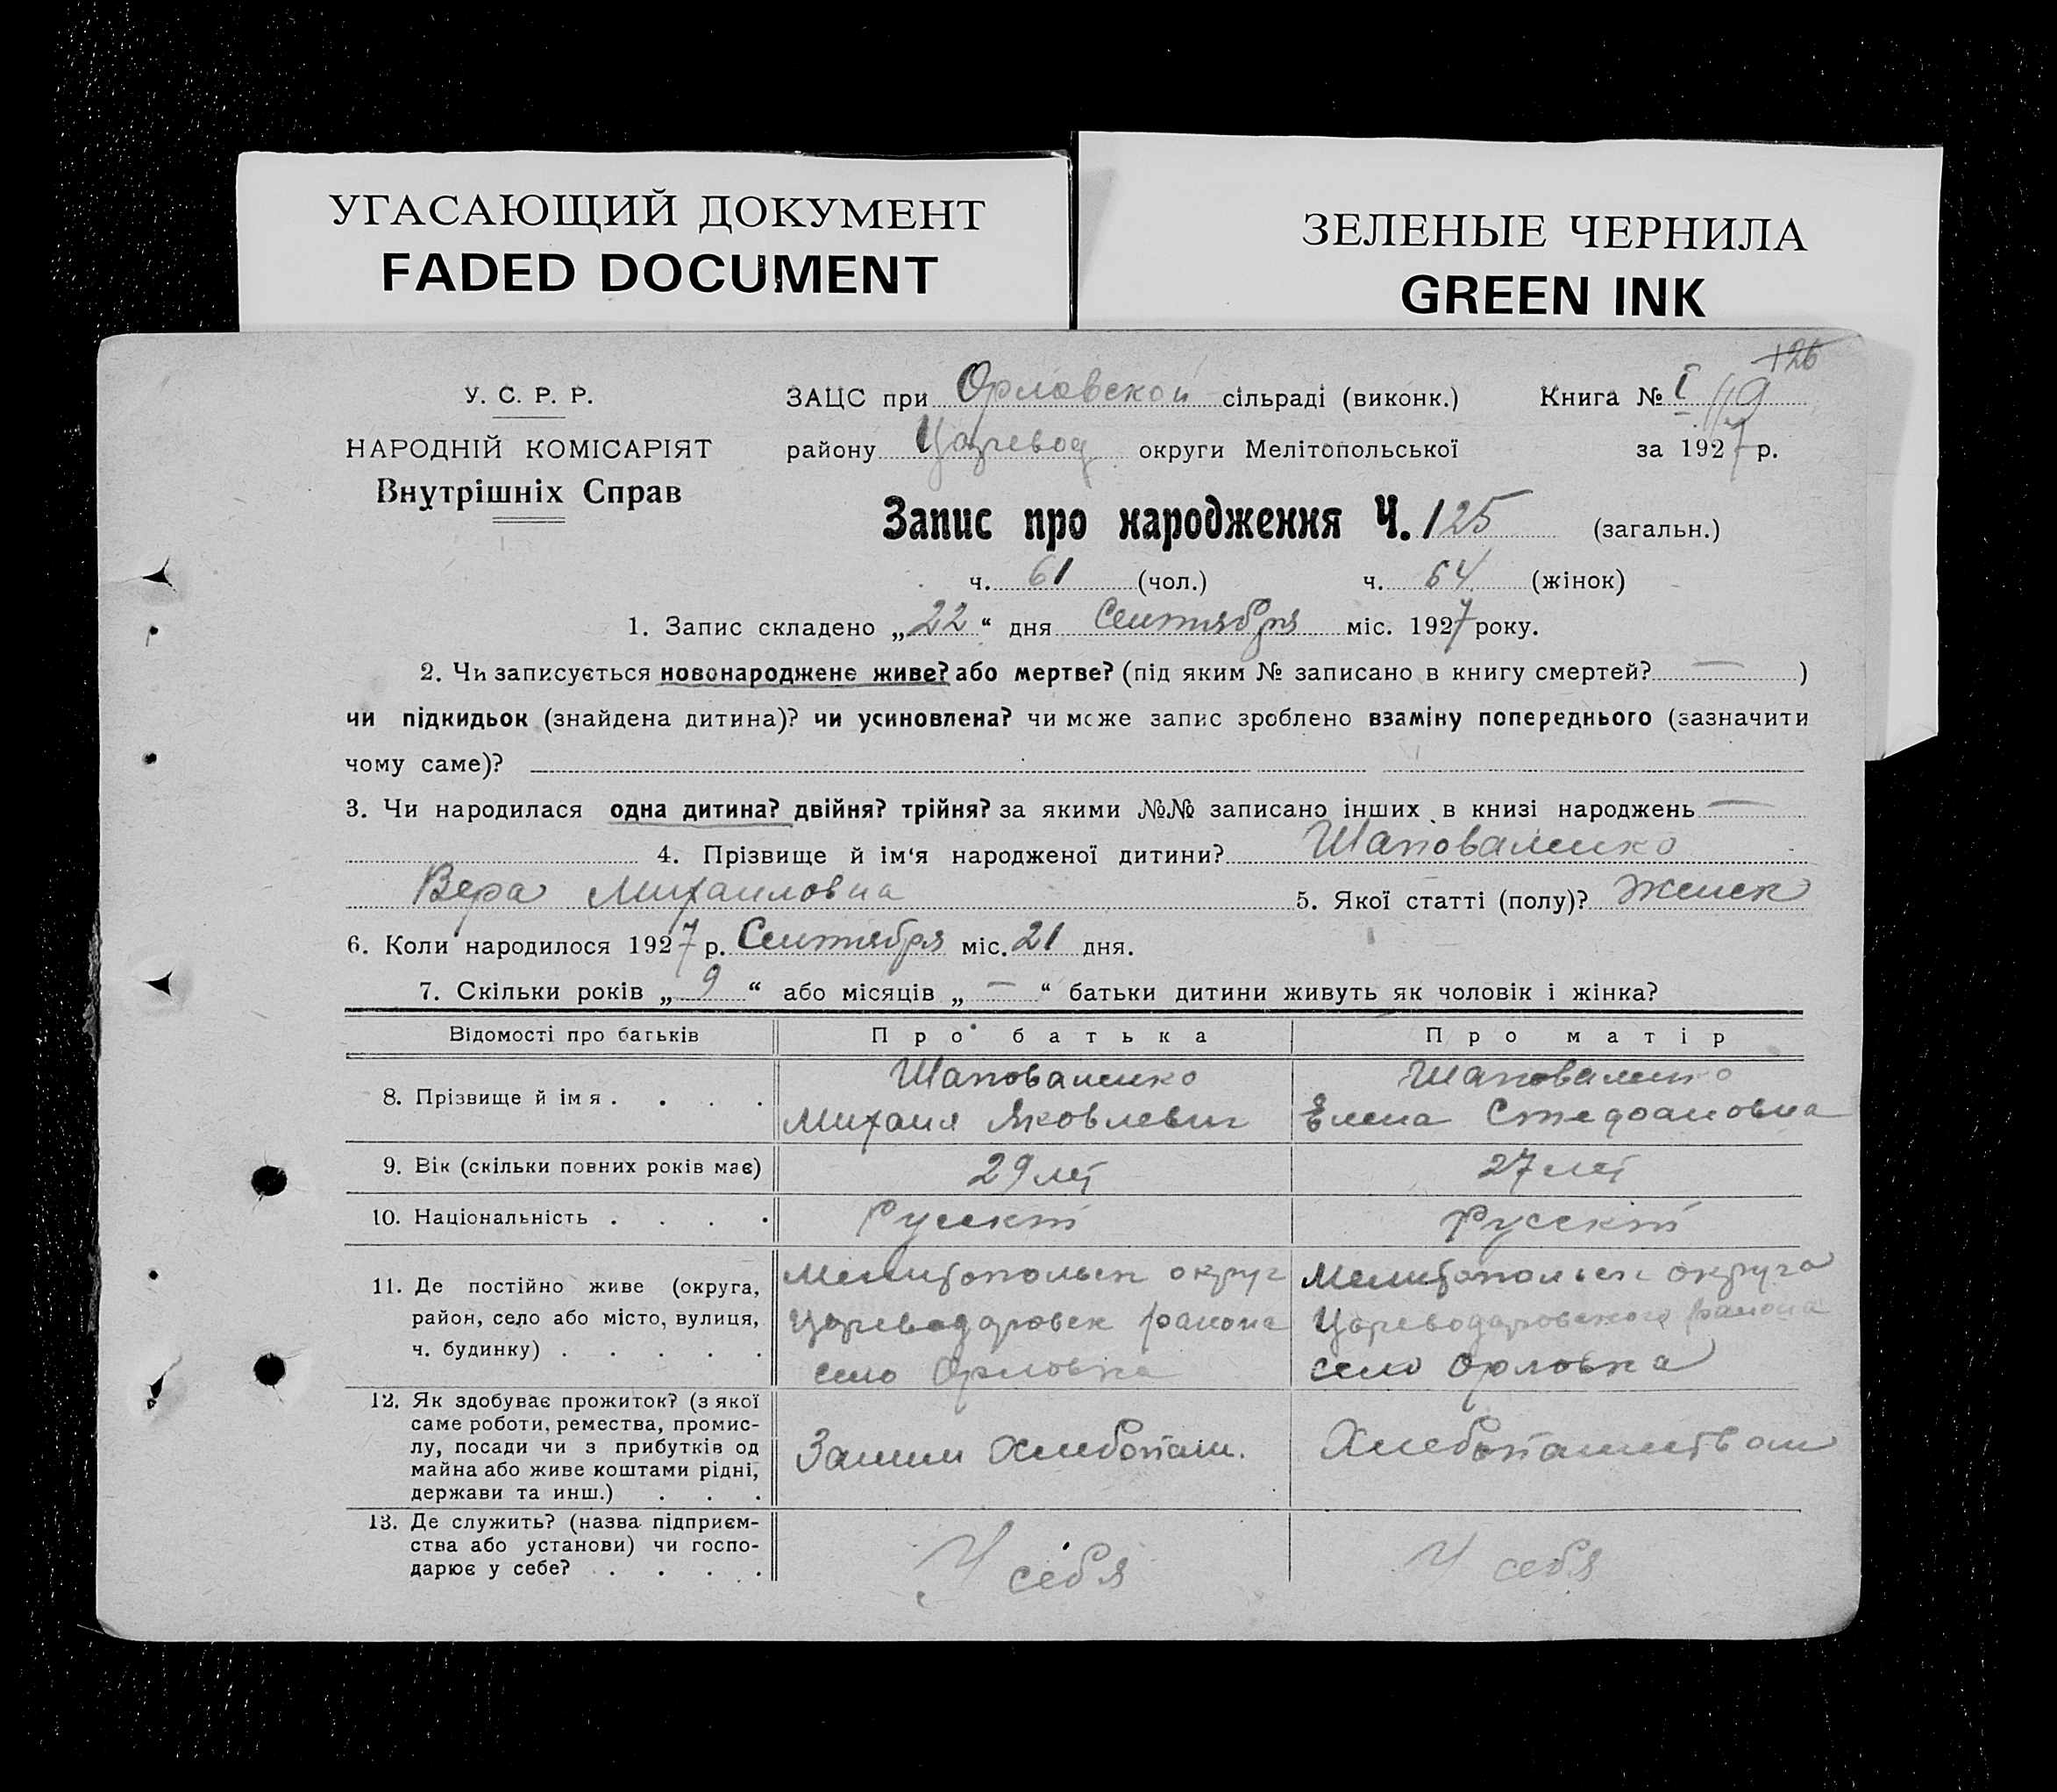 УГАСАЮЩИЙ ДОКУМЕНТ
FADED DOCUMENT
ЗЕЛЕНЫЕ ЧЕРНИЛА
GREEN INK
126
У. С. Р. Р.
НАРОДНІЙ КОМІСАРІЯТ
Внутрішніх Справ
ЗАЦС при Орловской сільраді (виконк.) Книга № I 119
району Царевод округи Мелітопольської за 1927 р.
Запис про народження Ч. 125 (загальн.)
ч. 61 (чол.) ч. 64 (жінок)
1. Запис складено „22“ дня Сентября міс. 1927 року.
2. Чи записується новонароджене живе? або мертве? (під яким № записано в книгу смертей? — )
чи підкидьок (знайдена дитина)? чи усиновлена? чи може запис зроблено взаміну попереднього (зазначити
чому саме)?
3. Чи народилася одна дитина? двійня? трійня? за якими №№ записано інших в книзі народжень —
4. Прізвище й ім‘я народженої дитини? Шаповаленко
Вера Михаиловна 5. Якої статті (полу)? Женск
6. Коли народилося 1927 р. Сентября міс. 21 дня.
7. Скільки років „ 9 “ або місяців „ — “ батьки дитини живуть як чоловік і жінка?
Відомості про батьків Про батька Про матір
8. Прізвище й імя . . . . Шаповаленко Шаповаленко
Михаил Яковлевич Елена Стефановна
9. Вік (скільки повних років має) 29 лет 27 лет
10. Національність . . . . Русскій Русскій
11. Де постійно живе (округа, Мелитопольск округ Мелитопольск округа
район, село або місто, вулиця, Цареводаровск района Цареводаровского района
ч. будинку) . . . . . село Орловка село Орловка
12. Як здобуває прожиток? (з якої
саме роботи, ремества, промис-
лу, посади чи з прибутків од Заним Хлебопаш. Хлебопашеством
майна або живе коштами рідні,
держави та инш.) . . .
13. Де служить? (назва підприєм-
ства або установи) чи госпо- У себя У себя
дарює у себе? . . . .